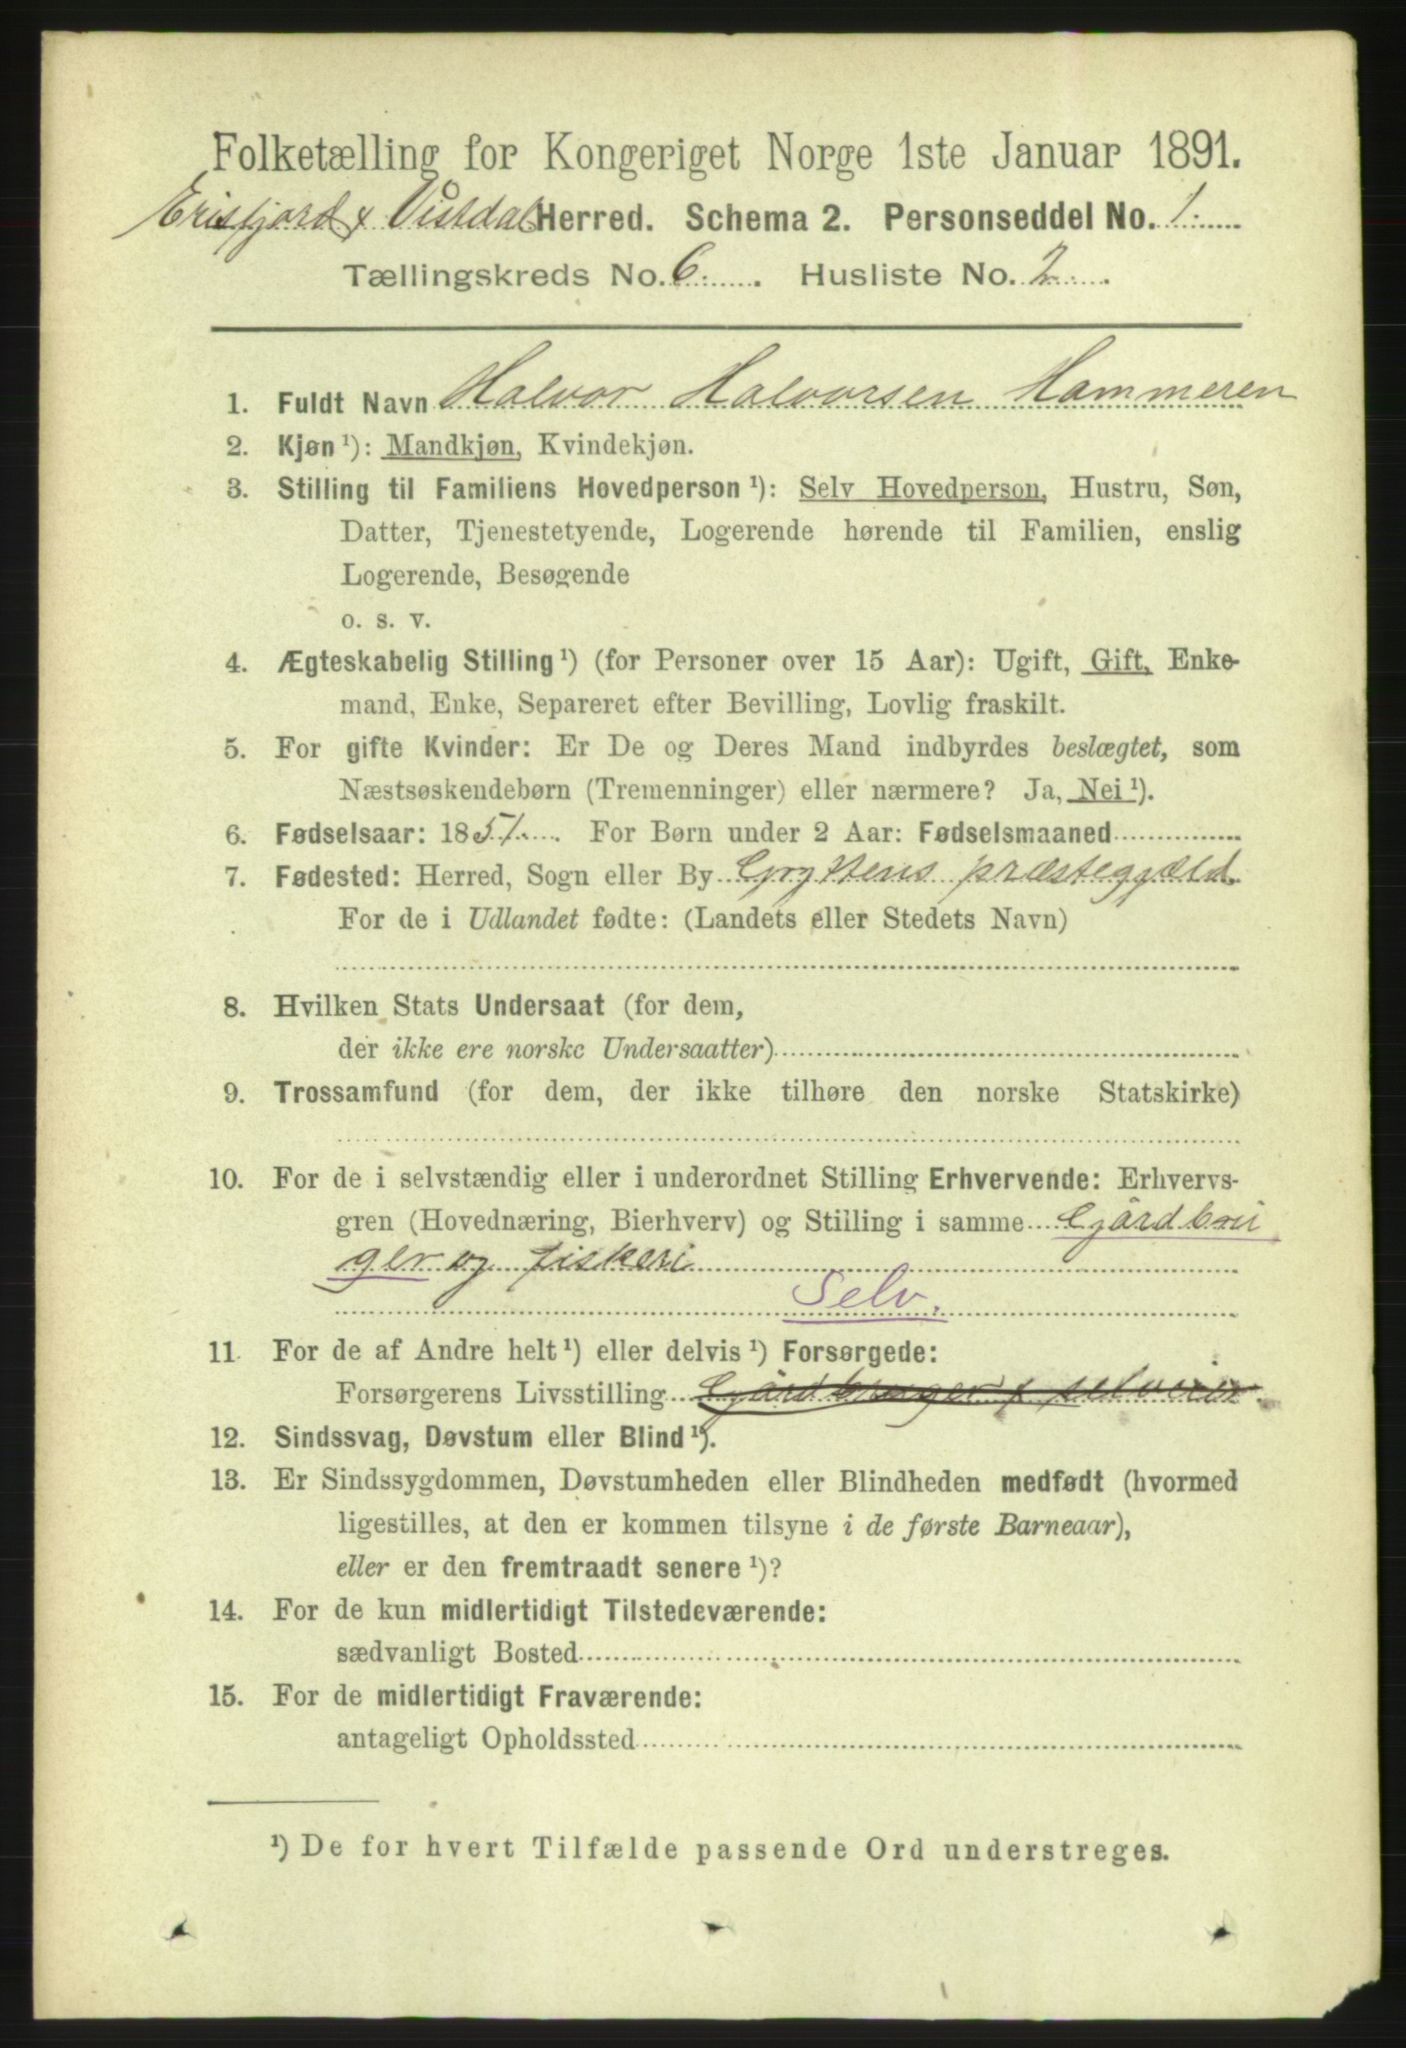 Folketælling for Kongeriget Norge 1ste Januar 1891.
Erisfjord & Vistdal Herred. Schema 2. Personseddel No. 1.
Tællingskreds No. 6. Husliste No. 2.
1. Fuldt Navn Halvor Halvorsen Hammeren
2. Kjøn¹): Mandkjøn, Kvindekjøn.
3. Stilling til Familiens Hovedperson¹): Selv Hovedperson, Hustru, Søn,
Datter, Tjenestetyende, Logerende hørende til Familien, enslig
Logerende, Besøgende
o. s. v.
4. Ægteskabelig Stilling¹) (for Personer over 15 Aar): Ugift, Gift, Enke-
mand, Enke, Separeret efter Bevilling, Lovlig fraskilt.
5. For gifte Kvinder: Er De og Deres Mand indbyrdes beslægtet, som
Næstsøskendebørn (Tremenninger) eller nærmere? Ja, Nei¹).
6. Fødselsaar: 1851. For Børn under 2 Aar: Fødselsmaaned
7. Fødested: Herred, Sogn eller By Gryttens præstegjæld.
For de i Udlandet fødte: (Landets eller Stedets Navn)
8. Hvilken Stats Undersaat (for dem,
der ikke ere norske Undersaatter)
9. Trossamfund (for dem, der ikke tilhøre den norske Statskirke)
10. For de i selvstændig eller i underordnet Stilling Erhvervende: Erhvervs-
gren (Hovednæring, Bierhverv) og Stilling i samme Gårdbru
ger og fiskeri
Selv.
11. For de af Andre helt¹) eller delvis¹) Forsørgede:
Forsørgerens Livsstilling Gårdbruger & selveier
12. Sindssvag, Døvstum eller Blind¹).
13. Er Sindssygdommen, Døvstumheden eller Blindheden medfødt (hvormed
ligestilles, at den er kommen tilsyne i de første Barneaar),
eller er den fremtraadt senere¹)?
14. For de kun midlertidigt Tilstedeværende:
sædvanligt Bosted
15. For de midlertidigt Fraværende:
antageligt Opholdssted
¹) De for hvert Tilfælde passende Ord understreges.